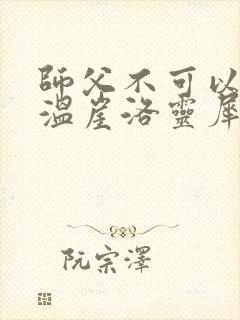 師父不可以
溫崖洛靈犀
阮宗澤